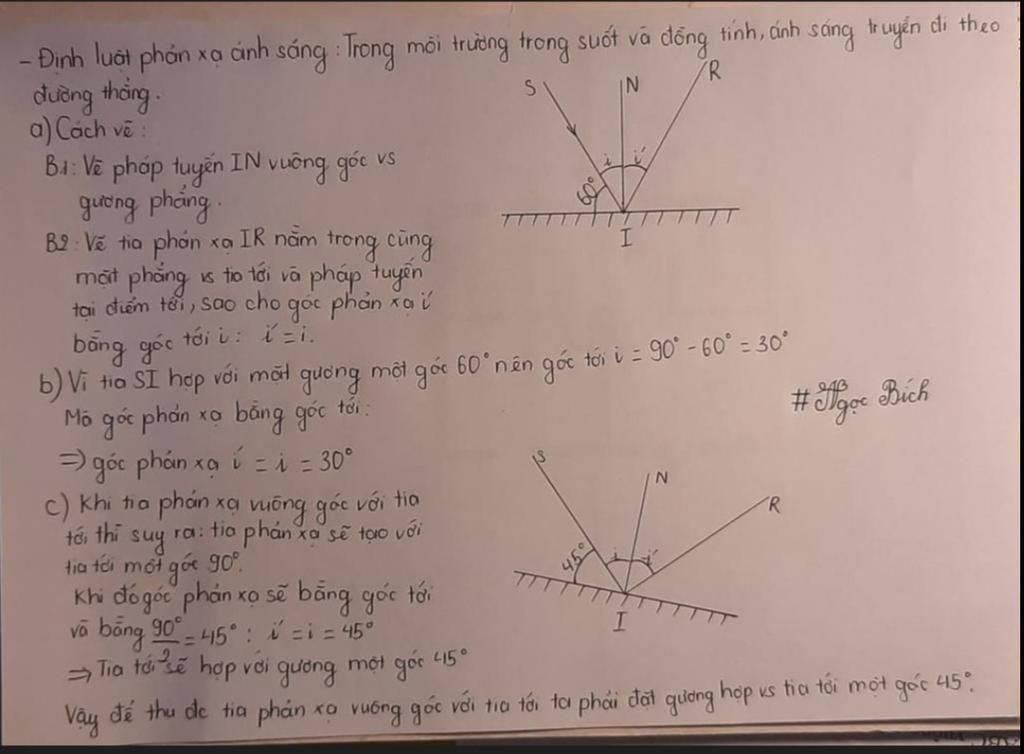 - Định luật phản xạ ánh sáng: Trong môi trường trong suốt và đồng tính, ánh sáng truyền đi theo
đường thẳng.
a) Cách vẽ:
B1: Vẽ pháp tuyến IN vuông góc vs
gương phẳng.
B2: Vẽ tia phản xạ IR nằm trong cùng
mặt phẳng vs tia tới và pháp tuyến
tại điểm tới, sao cho góc phản xạ i'
bằng góc tới i: i' = i.
S
N
R
i
i'
60°
I
b) Vì tia SI hợp với mặt gương một góc 60° nên góc tới i = 90° - 60° = 30°
Mà góc phản xạ bằng góc tới:
=> góc phản xạ i' = i = 30°
# Ngọc Bích
c) Khi tia phản xạ vuông góc với tia
tới thì suy ra: tia phản xạ sẽ tạo với
tia tới một góc 90°.
Khi đó góc phản xạ sẽ bằng góc tới
và bằng 90°/2 = 45° : i' = i = 45°
=> Tia tới sẽ hợp với gương một góc 45°
S
N
R
45°
i
i'
I
Vậy để thu đc tia phản xạ vuông góc với tia tới ta phải đặt gương hợp vs tia tới một góc 45°.